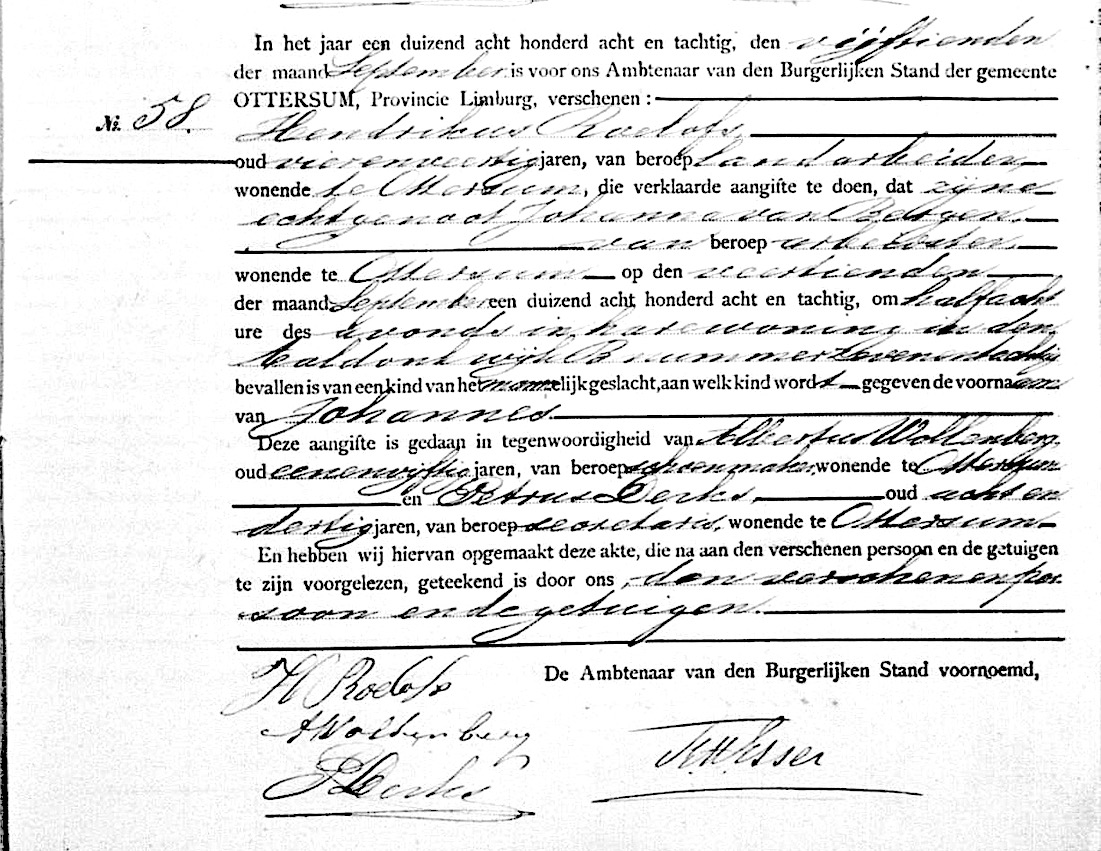 In het jaar een duizend acht honderd acht en tachtig, den vijftienden
der maand September is voor ons Ambtenaar van den Burgerlijken Stand der gemeente
OTTERSUM, Provincie Limburg, verschenen :
No. 58.
Hendrikus Roelofs
oud vierenveertig jaren, van beroep landarbeider
wonende te Ottersum, die verklaarde aangifte te doen, dat zijne
echtgenoot Johanna van Bergen
van beroep arbeidster
wonende te Ottersum op den veertienden
der maand September een duizend acht honderd acht en tachtig, om half acht
ure des avonds in hare woning in den
wijk B nummer zevenentachtig
bevallen is van een kind van het mannelijk geslacht, aan welk kind wordt gegeven de voornaam
van Johannes
Deze aangifte is gedaan in tegenwoordigheid van Albertus Woltenberg
oud eenenvijftig jaren, van beroep schoenmaker, wonende te Ottersum
en Petrus Derks, oud acht en
dertig jaren, van beroep secretaris, wonende te Ottersum
En hebben wij hiervan opgemaakt deze akte, die na aan den verschenen persoon en de getuigen
te zijn voorgelezen, geteekend is door ons, den verschenen per
soon en de getuigen.
De Ambtenaar van den Burgerlijken Stand voornoemd,
H Roelofs
A Woltenberg
P Derks